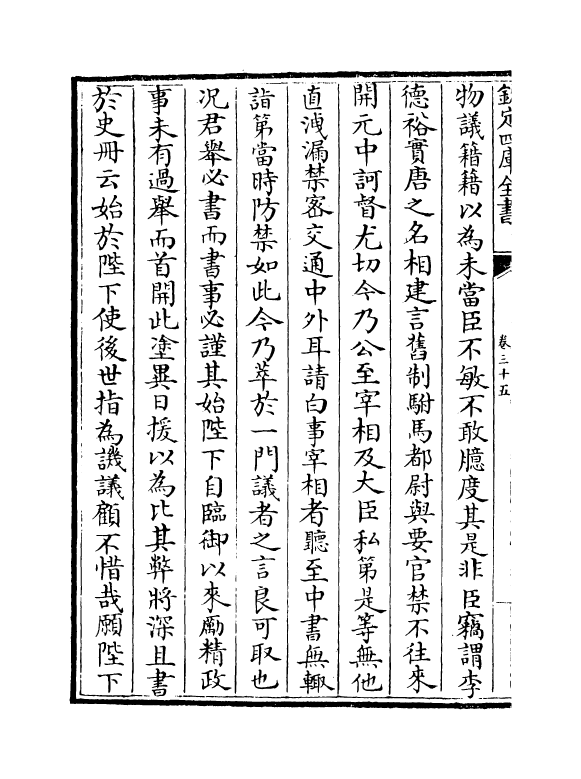 欽定四庫全書
卷三十五
物議籍籍以為未當臣不敏不敢臆度其是非臣竊謂李
德裕實唐之名相建言舊制駙馬都尉與要官禁不往來
開元中訶督尤切今乃公至宰相及大臣私第是等無他
直洩漏禁密交通中外耳請白事宰相者聽至中書無輙
詣第當時防禁如此今乃萃於一門議者之言良可取也
况君舉必書而書事必謹其始陛下自臨御以來勵精政
事未有過舉而首開此塗異日援以為比其弊將深且書
於史冊云始於陛下使後世指為譏議顧不惜哉願陛下